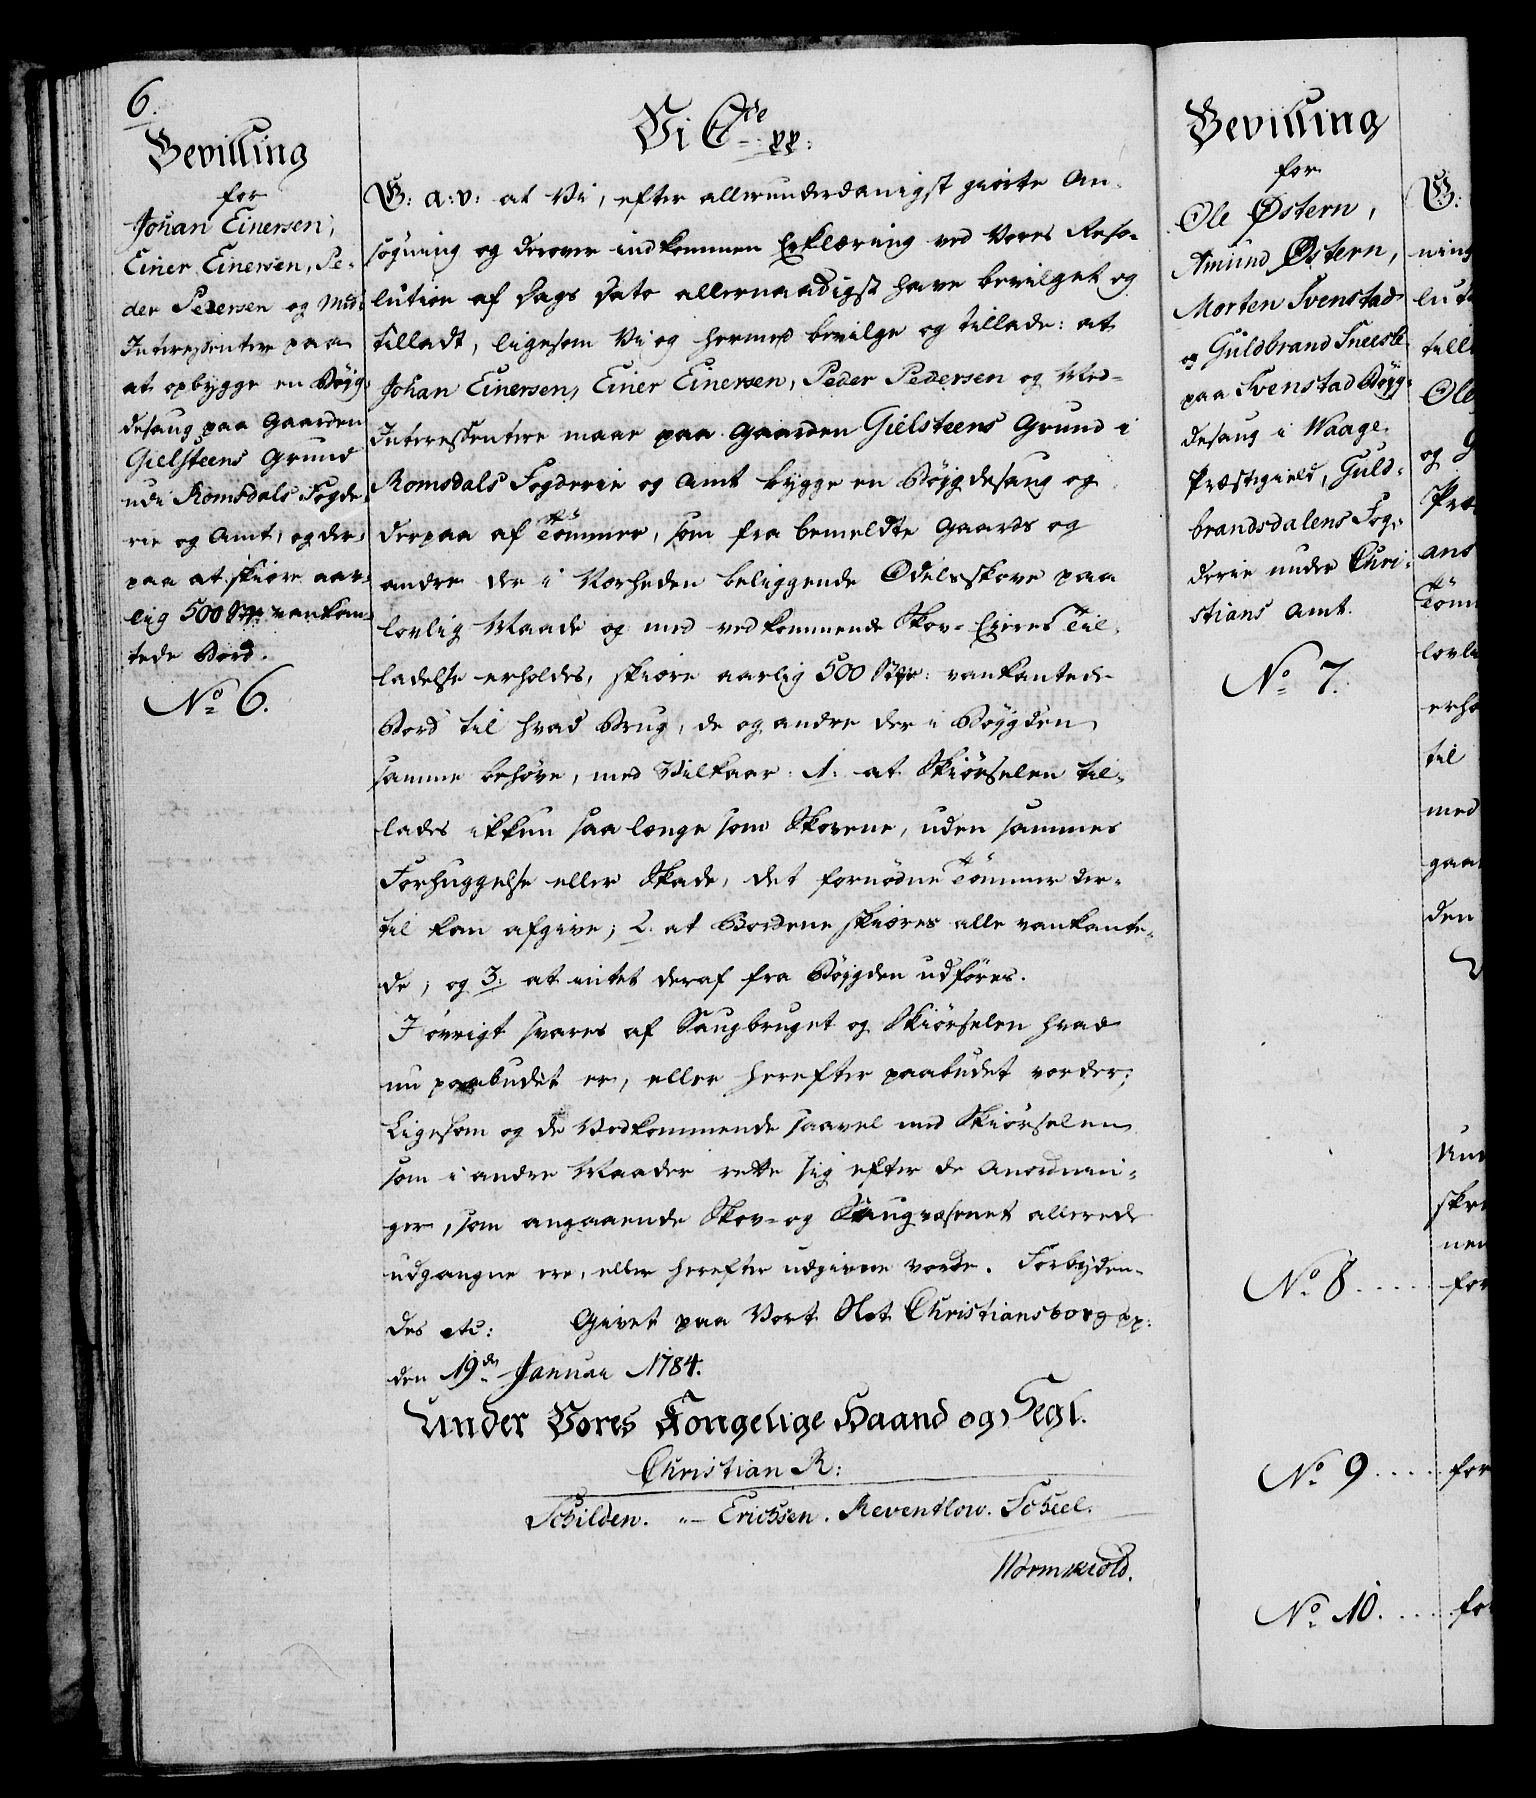 6.
Bevilling
for
Johan Einersen,
Einer Einersen, Pe-
der Pedersen og Med-
Interessentere paa
at opbygge en Bøyg-
desaug paa Gaarden
Gielsteens Grund
udi Romsdals Fogde-
rie og Amt, og der-
paa at skiære aar-
lig 500 Stkr: vankan-
tede Bord.
No 6.
Vi C 7de pp:
G: A: V: at Vi, efter allerunderdanigst giorte An-
søgning og derover indkommen Erklæring ved Vores Reso-
lution af Dags Dato allernaadigst have bevilget og
tilladt, ligesom Vi og hermed bevilge og tillade: at
Johan Einersen, Einer Einersen, Peder Pedersen og Med-
Interessentere maae paa Gaarden Gielsteens Grund i
Romsdals Fogderie og Amt bygge en Bøygdesaug og
derpaa af Tømmer, som fra bemeldte Gaards og
andre der i Nærheden beliggende Odelsskove paa
lovlig Maade og med vedkommende Skov-Eieres Til-
ladelse erholdes, skiære aarlig 500 Stkr: vankantede
Bord til hvad Brug, de og andre der i Bøygden
samme behøve, med Vilkaar: 1. at Skiørselen til-
lades ikkun saa længe som Skovene, uden sammes
Forhuggelse eller Skade, det fornødne Tømmer der-
til kan afgive; 2. at Bordene skiæres alle vankante-
de; og 3. at intet deraf fra Bøygden udføres.
I øvrigt svares af Saugbruget og Skiørselen hvad
nu paabudet er, eller herefter paabudet vorder;
Ligesom og de Vedkommende saavel med Skiørselen
som i andre Maader rette sig efter de Anordnin-
ger, som angaaende Skov- og Saugvæsenet allerede
udgangne ere, eller herefter udgivne vorde. Forbyden-
des etc: Givet paa Vort Slot Christiansborg pp:
den 19de Januar 1784.
Under Vores Kongelige Haand og Segl.
Christian R:
Schilden. Erichsen. Reventlow. Scheel.
Wormskiold.
Bevilling
for
Ole Østern,
Amund Østern,
Morten Svenstad
og Guldbrand Sneesle
paa Svenstad Bøyg-
desaug i Waage
Præstegield, Guld-
brandsdalens Fog-
derie under Chri-
stians Amt.
No 7.
No 8 .....
No 9 .....
No 10 .....
G:
ning
lut
till
Ole
og G
Præ
ans
Tøm
lovl
erho
til
med
gaa
den
skr
nen
for
for
fo